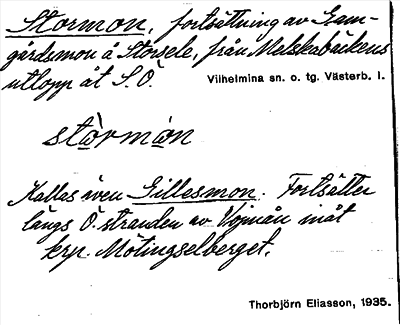 Stormon, fortsättning av Gam-
gårdsmon å Storsele, från Melskabäckens
utlopp åt S. Ö.
Vilhelmina sn. o. tg. Västerb. l.
stòrmòn
Kallas även Gillesmon. Fortsätter
längs Ö. stranden av Vojmån inåt
krp. Mötingselberget.
Thorbjörn Eliasson, 1935.